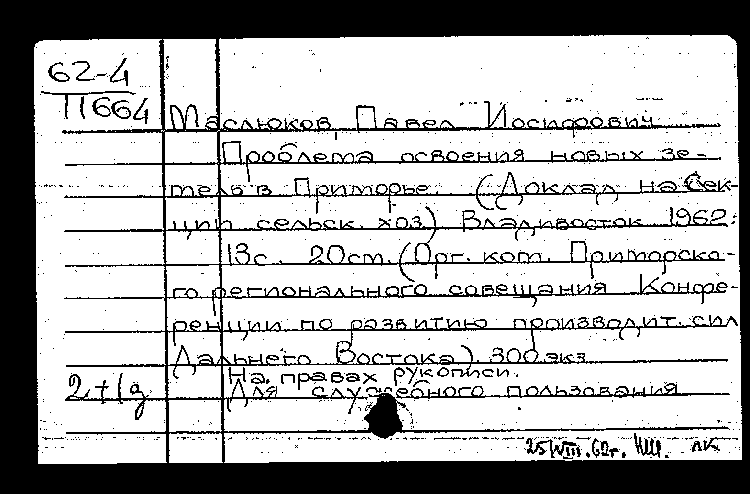 62-4
11664
Маслюков, Павел Иосифович
Проблема освоения новых зе-
мель в Приморье. (Доклад на Сек-
ции сельск. хоз.) Владивосток 1962.
13с. 20см. (Орг. ком. Приморско-
го регионального совещания Конфе-
ренции по развитию производит. сил
Дальнего Востока). 300 экз.
На правах рукописи.
Для служебного пользования
2+1д
25/VIII.62г. ЛК